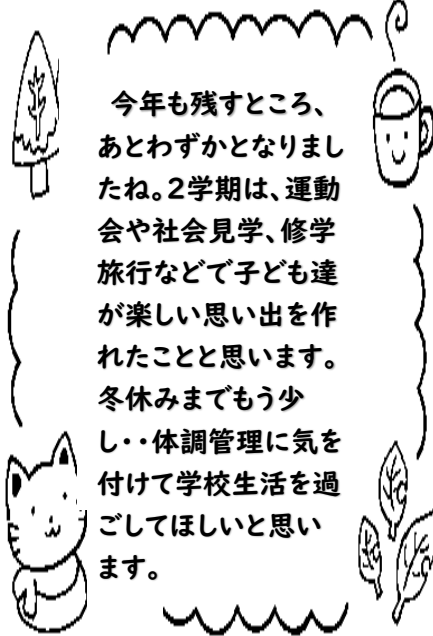 今年も残すところ、
あとわずかとなりまし
たね。2学期は、運動
会や社会見学、修学
旅行などで子ども達
が楽しい思い出を作
れたことと思います。
冬休みまでもう少
し・・体調管理に気を
付けて学校生活を過
ごしてほしいと思い
ます。